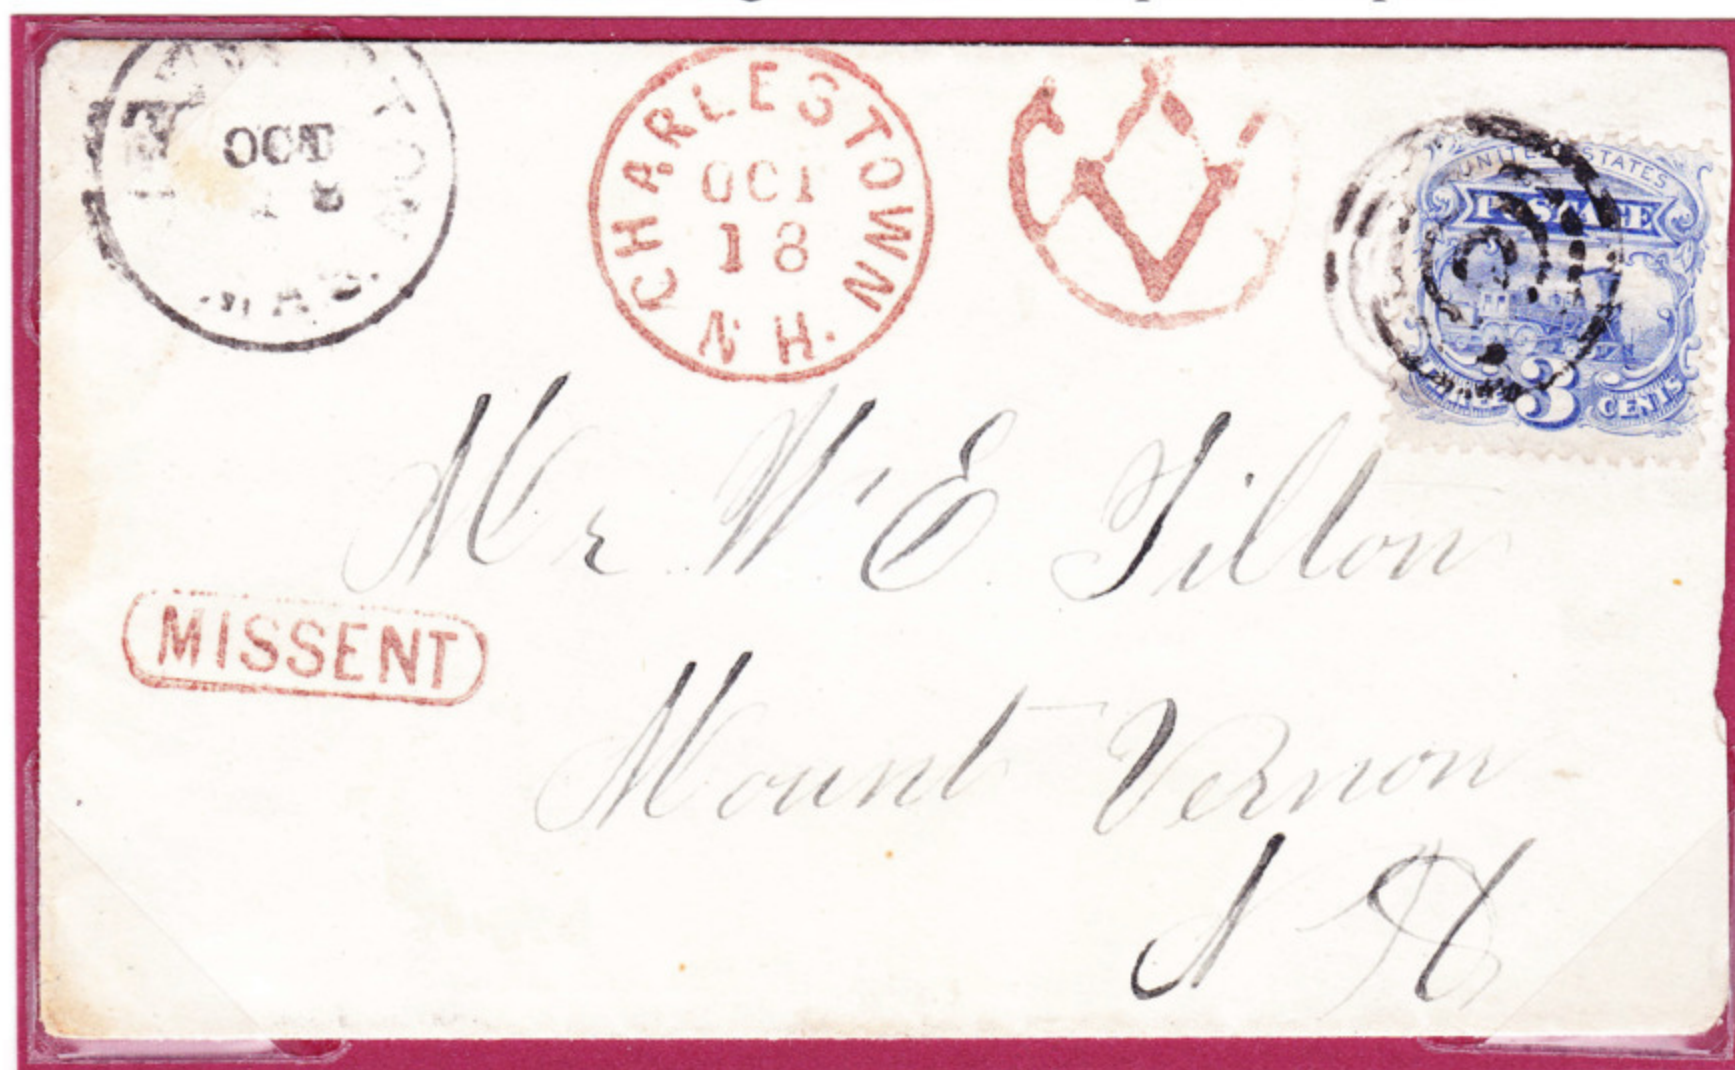 OCT
MAS.
CHARLESTOWN
OCT
18
N H.
UNITED STATES
POSTAGE
THREE 3 CENTS
Mr W. E. Tilton
MISSENT
Mount Vernon
N H